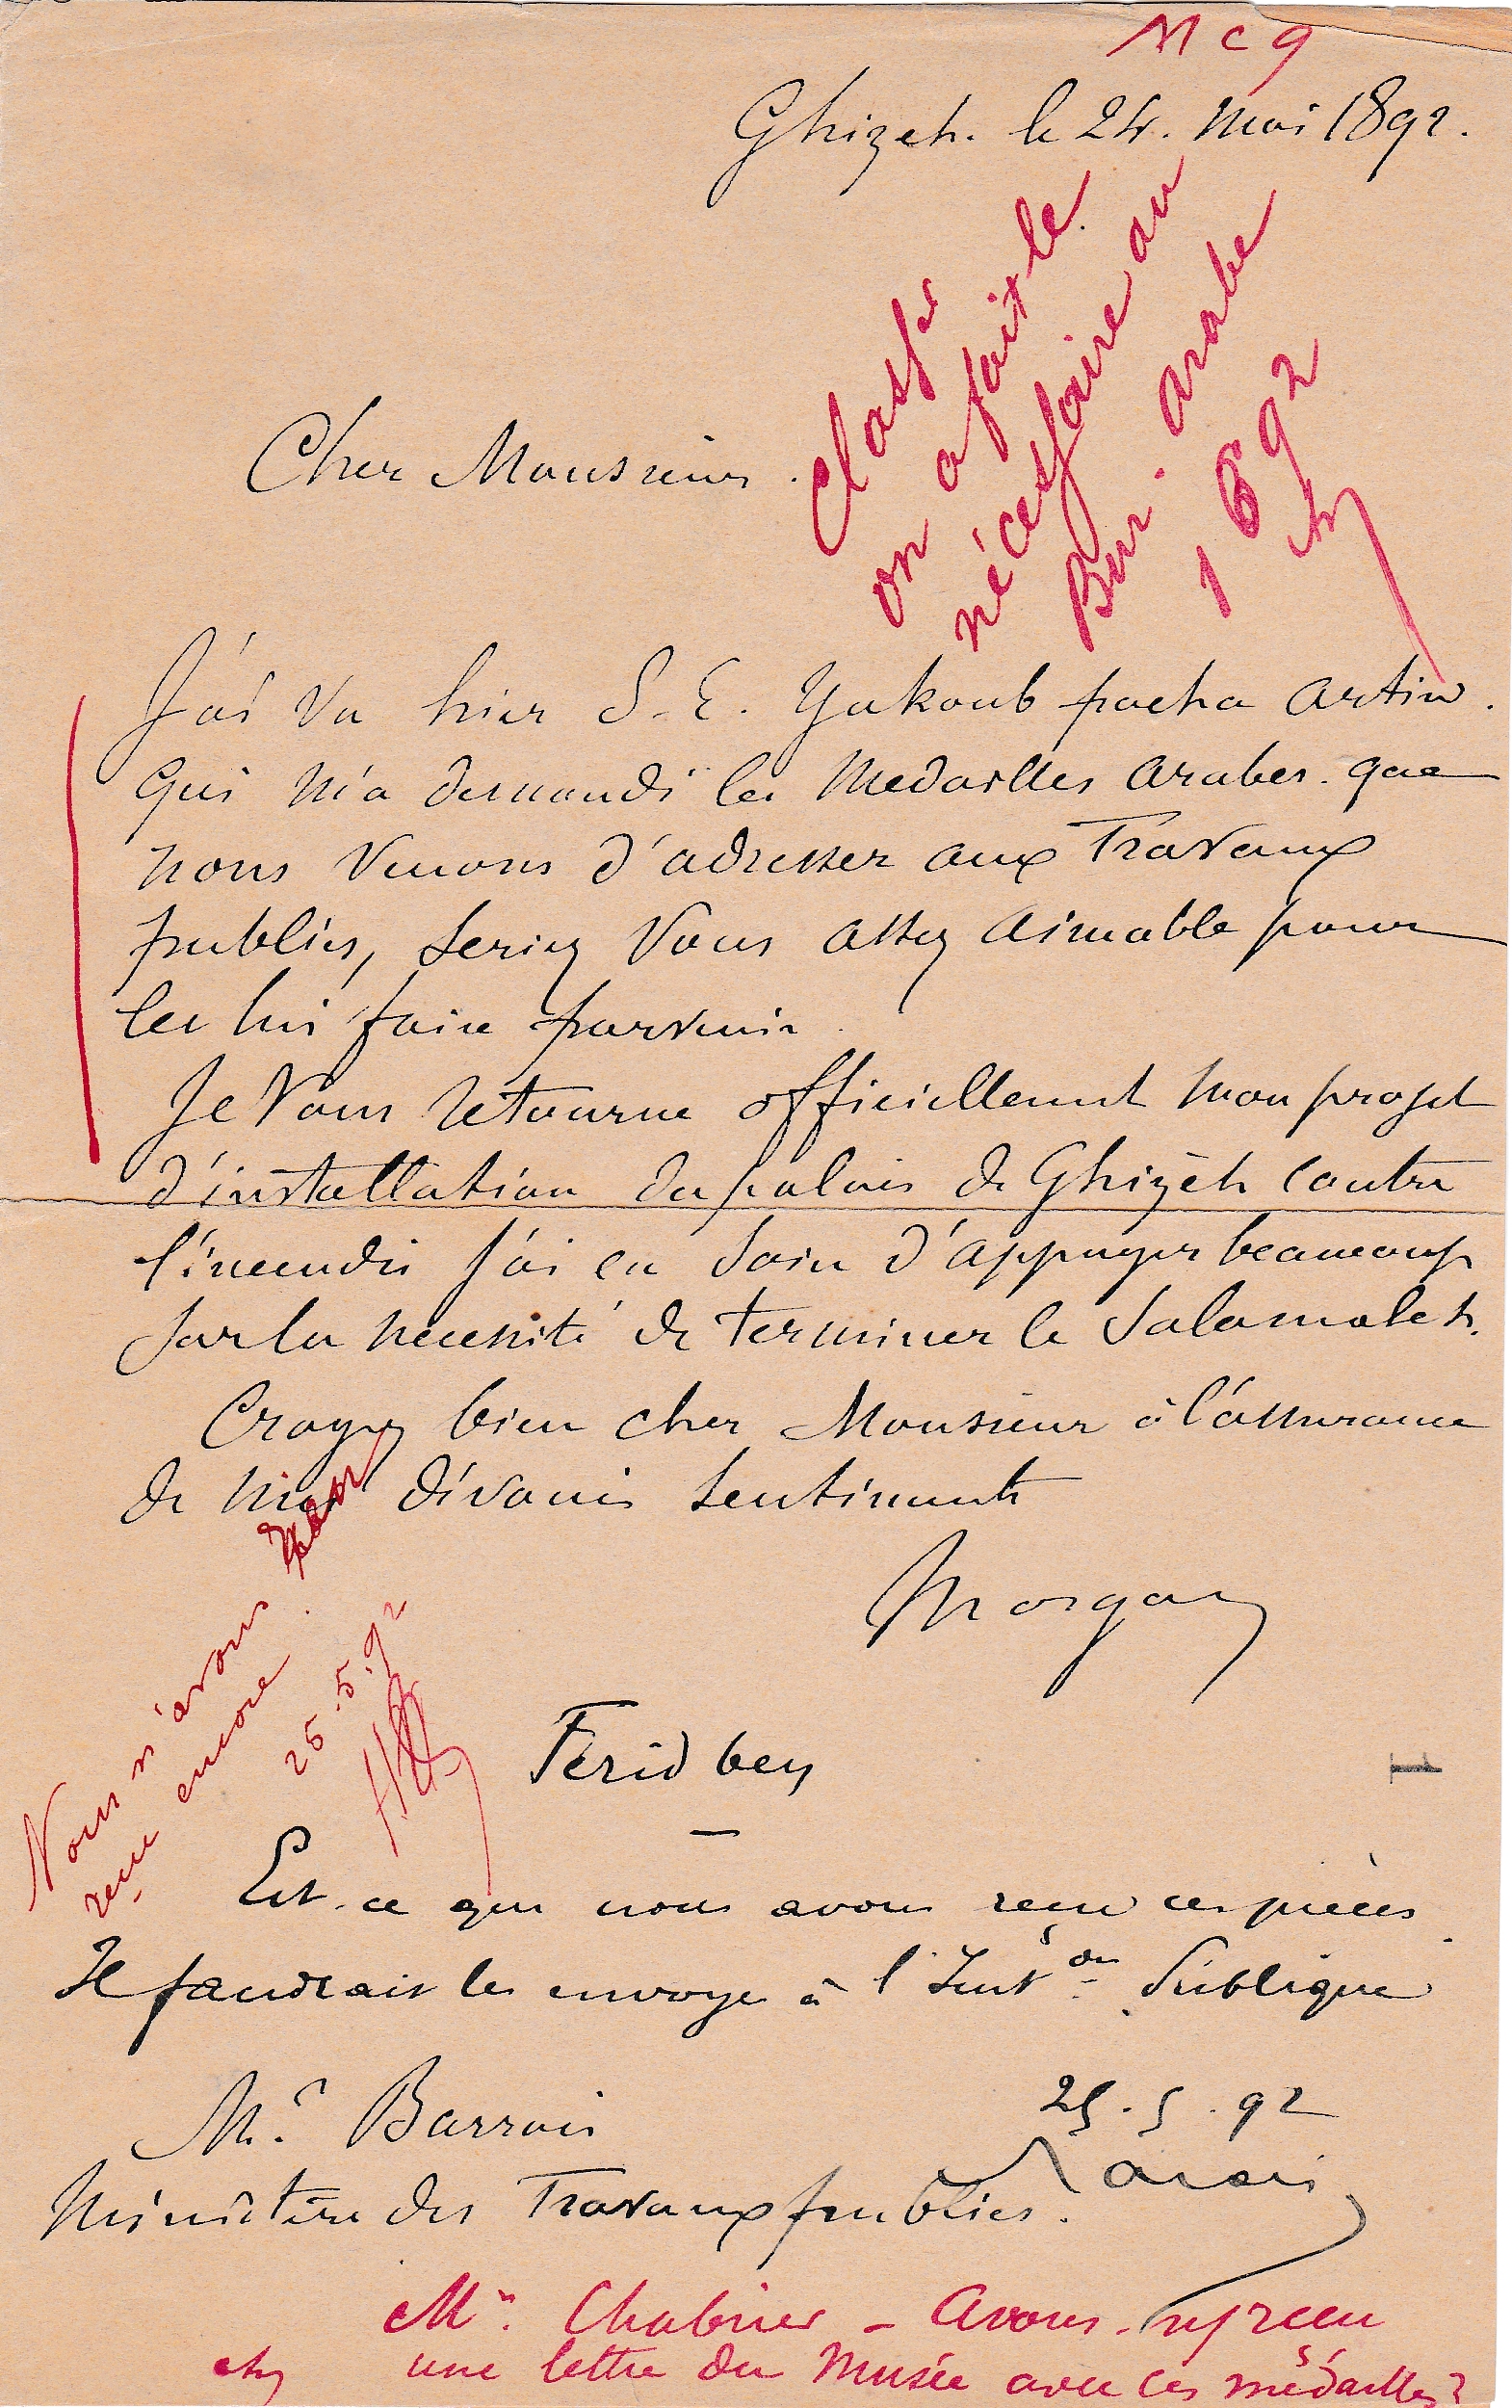 Ghizeh. le 24. Mai 1892.
Classé
on a fait le
nécessaire au
Bur. arabe
1 6 92
Cher Monsieur.
J'ai vu hier S. E. Yakoub pacha Artin.
qui m'a demandé les Medailles arabes. que
nous venons d'adresser aux Travaux
publics, seriez vous assez aimable pour
les lui faire parvenir.
Je vous retourne officiellement mon projet
d'installation du palais de Ghizèh contre
l'incendie j'ai eu soin d'appuyer beaucoup
sur la necessité de terminer le Salamalek.
Croyez bien cher Monsieur à l'assurance
de mes dévoués sentiments
Morgan
Nous n'avons rien
reçu encore.
25.5.92
Ferid bey
Est-ce que nous avons reçu ces pièces
Il faudrait les envoyer à l'Inst^on Publique
25.5.92
Barois
Mr. Barrois
Ministère des Travaux publics.
Mr. Chabrier - Avons-ns reçu
une lettre du Musée avec les médailles?